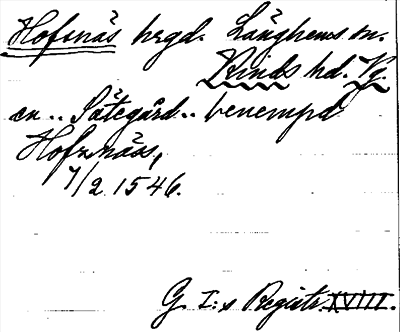 Hofsnäs hrgd. Länghems sn.
Kinds hd. Vg.
en .. Sätegård .. benempd
Hofznääs,
7/2 1546.
G. I:s Registr. XVIII.